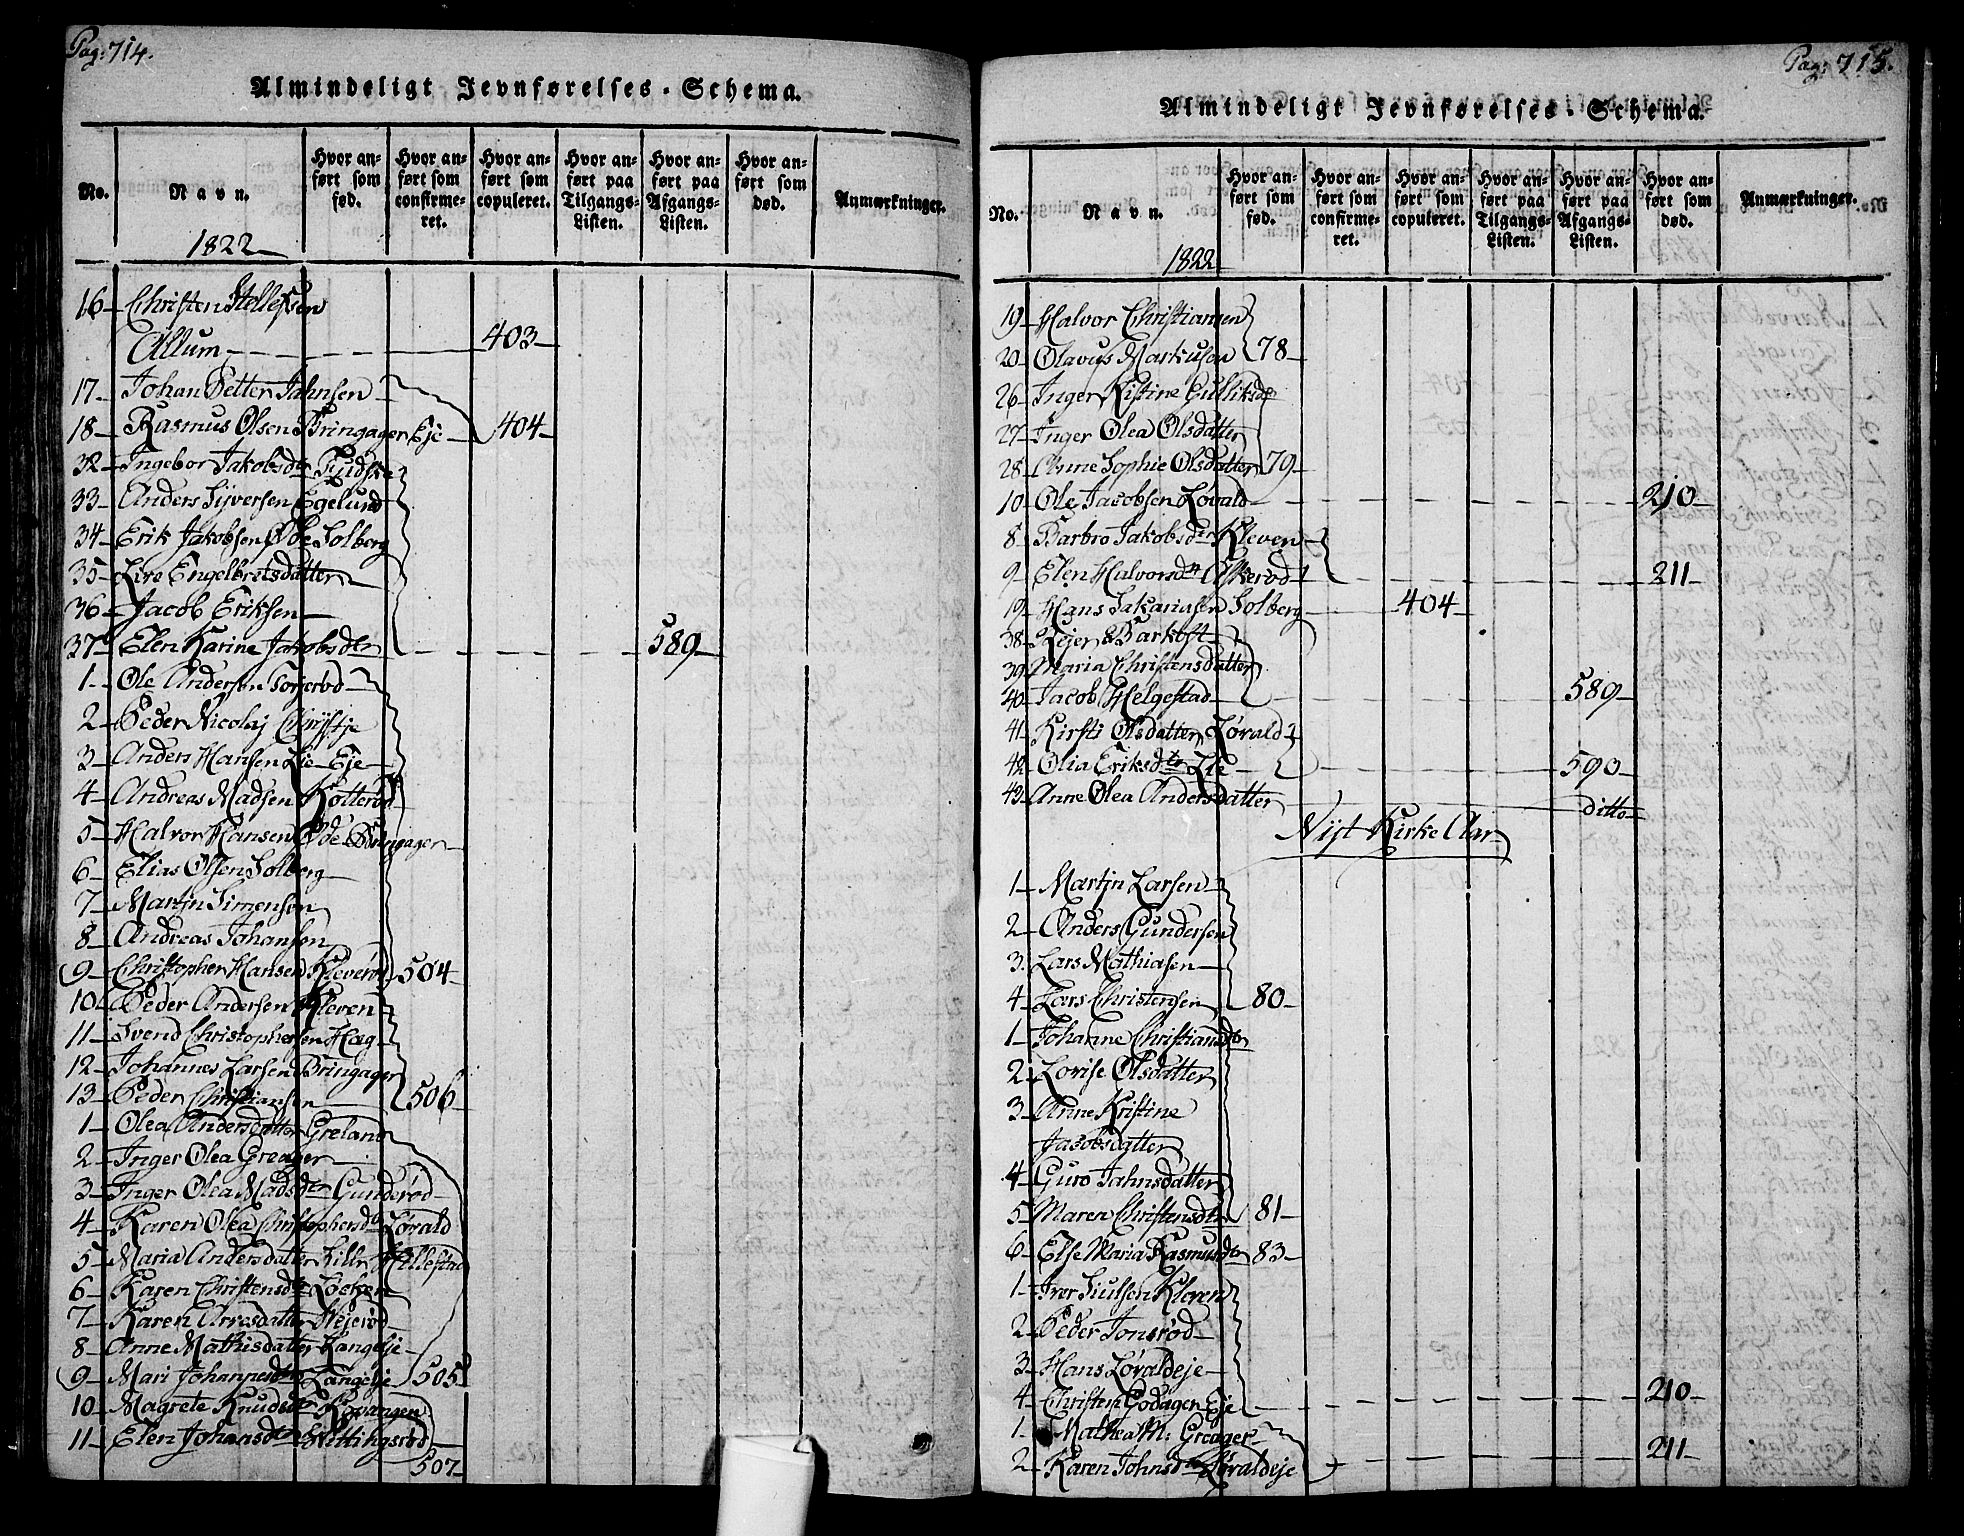 Pag: 714.
Almindeligt Jevnførelses-Schema.
No. Navn. Hvor anført som fød. Hvor anført som confirmeret. Hvor anført som copuleret. Hvor anført paa Tilgangs-Listen. Hvor anført paa Afgangs-Listen. Hvor anført som død. Anmærkninger.
1822
16 Christen Stellefsen
Allum 403
17 Johan Petter Jahnsen
18 Rasmus Olsen Bringager Eje 404
32 Ingebor Jakobsdtr
33 Anders Syversen Egelund
34 Erik Jakobsen Øde Solberg
35 Live Engelbretsdatter
36 Jacob Eriksen
37 Elen Karine Jakobsdtr 589
1 Ole Andersen
2 Peder Nicolaj
3 Anders Hansen Lie Eje
4 Andreas Madsen
5 Halvor Hansen Øde Bringager
6 Elias Olsen Solberg
7 Martin Simensen
8 Andreas Johansen
9 Christopher Hansen Kleverød 504
10 Peder Andersen Kleven
11 Svend Christophersen Hag
12 Johannes Larsen Bringager
13 Peder Christiansen 506
1 Olea Andersdatter Greland
2 Inger Olea Greager
3 Inger Olea Madsdtr Gunderød
4 Karen Olea Christophersdtr Løvald
5 Maria Andersdatter Lille Hillestad
6 Karen Christensdtr Løcken
7 Karen Arresdatter
8 Anne Mathisdatter Langeje
9 Mari Johannesdtr Langeje 505
10 Magrete Knudsdtr
11 Elen Johansdtr
507
Pag: 715.
Almindeligt Jevnførelses-Schema.
No. Navn. Hvor anført som fød. Hvor anført som confirmeret. Hvor anført som copuleret. Hvor anført paa Tilgangs-Listen. Hvor anført paa Afgangs-Listen. Hvor anført som død. Anmærkninger.
1822
19 Halvor Christiansen
20 Olavus Markusen 78
26 Inger Kistine Gulliksdr
27 Inger Olea Olsdatter
28 Anne Sophie Olsdatter 79
10 Ole Jacobsen Løvald 210
8 Barbro Jakobsdtr Kleven
9 Elen Halvorsdtr Askerød 211
19 Hans Sakariasen Solberg 404
38 Lejer Barkost
39 Maria Christensdatter
40 Jacob Helgestad 589
41 Kirsti Olsdatter Løvald
42 Olia Eriksdtr Lie 590
43 Anne Olea Andersdatter ditto
Nyt Kirke Aar
1 Martin Larsen
2 Anders Gundersen
3. Lars Mathiasen
4 Lars Christensen 80
1 Johanne Christiansdtr
2 Lovise Olsdatter
3 Anne Kristine
Jacobsdatter
4 Guro Jahnsdatter
5 Maren Christensdtr 81
6 Else Maria Rasmusdtr 83
1 Iver Siulsen Kleven
2 Peder Tonsrød
3 Hans Løvaldeje
4 Christen Godager Eje 210
1 Mathea M: Greager
2 Karen Johnsdtr Løvaldeje 211